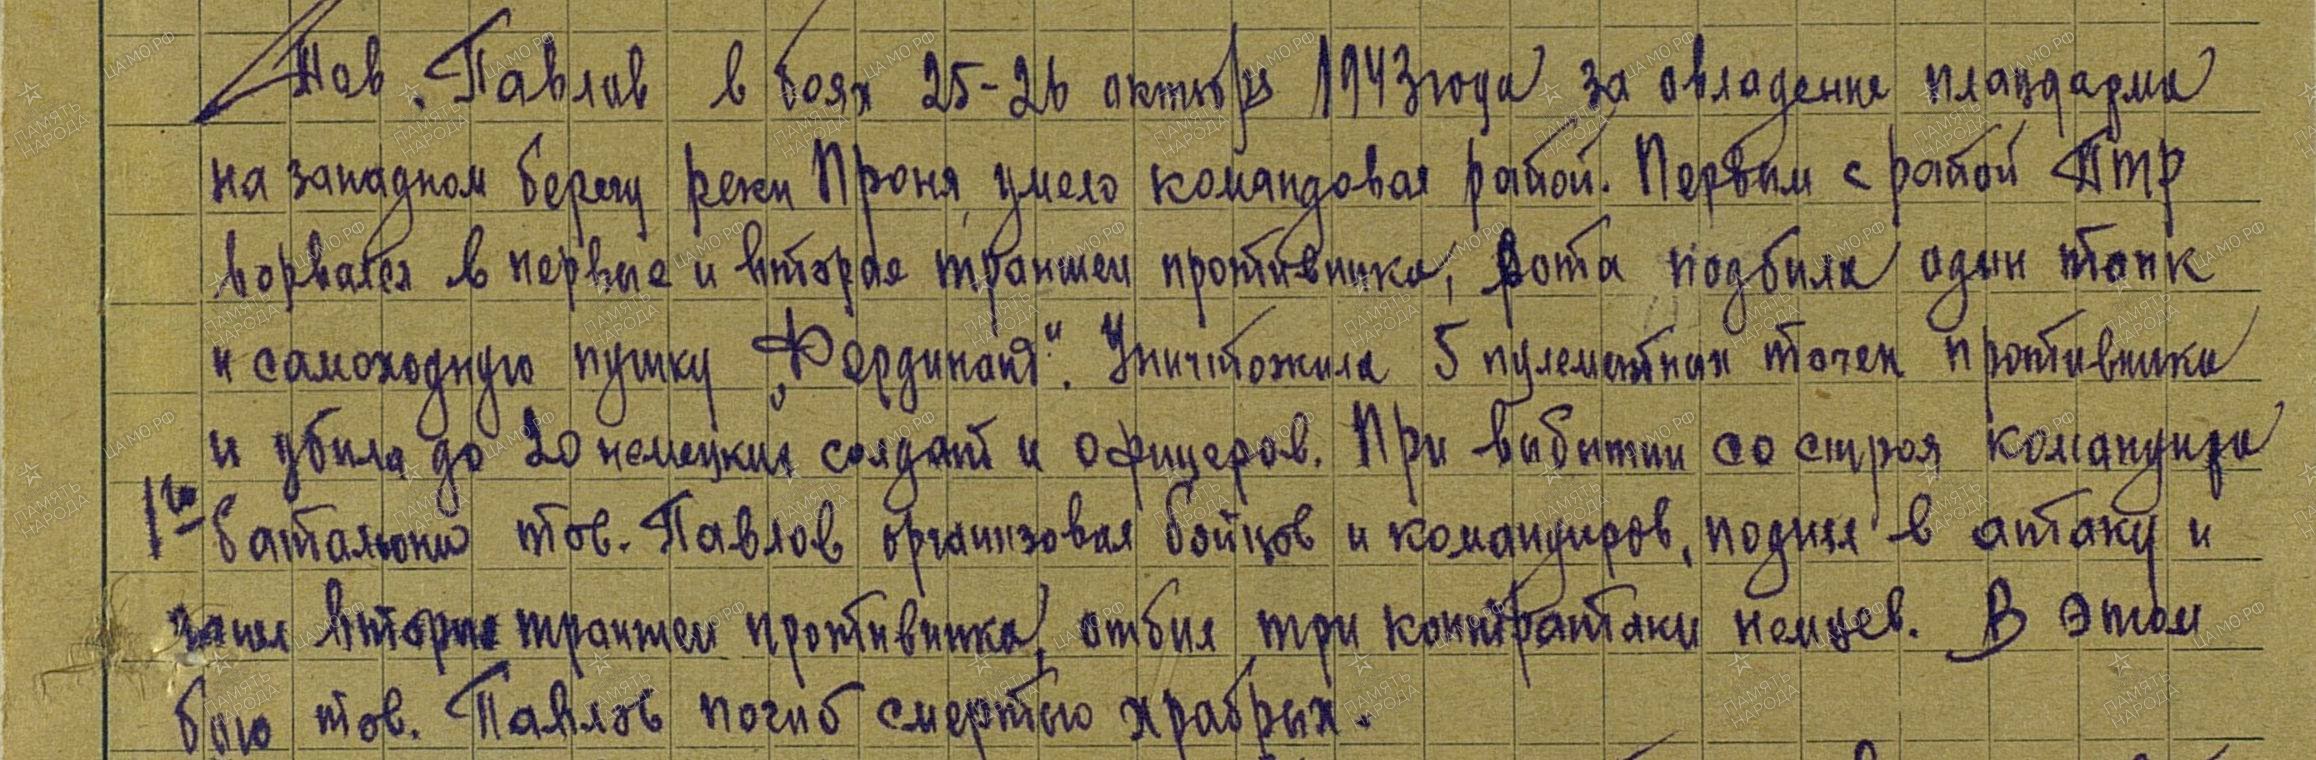 Тов. Павлов в боях 25-26 октября 1943 года за овладение плацдарма
на западном берегу реки Проня умело командовал ротой. Первым с ротой ПТР
ворвался в первые и вторые траншеи противника, рота подбила один танк
и самоходную пушку „Фердинанд". Уничтожила 5 пулеметных точек противника
и убила до 20 немецких солдат и офицеров. При выбытии со строя командира
1го батальона тов. Павлов организовал бойцов и командиров, поднял в атаку и
занял вторые траншеи противника, отбил три контратаки немцев. В этом
бою тов. Павлов погиб смертью храбрых.